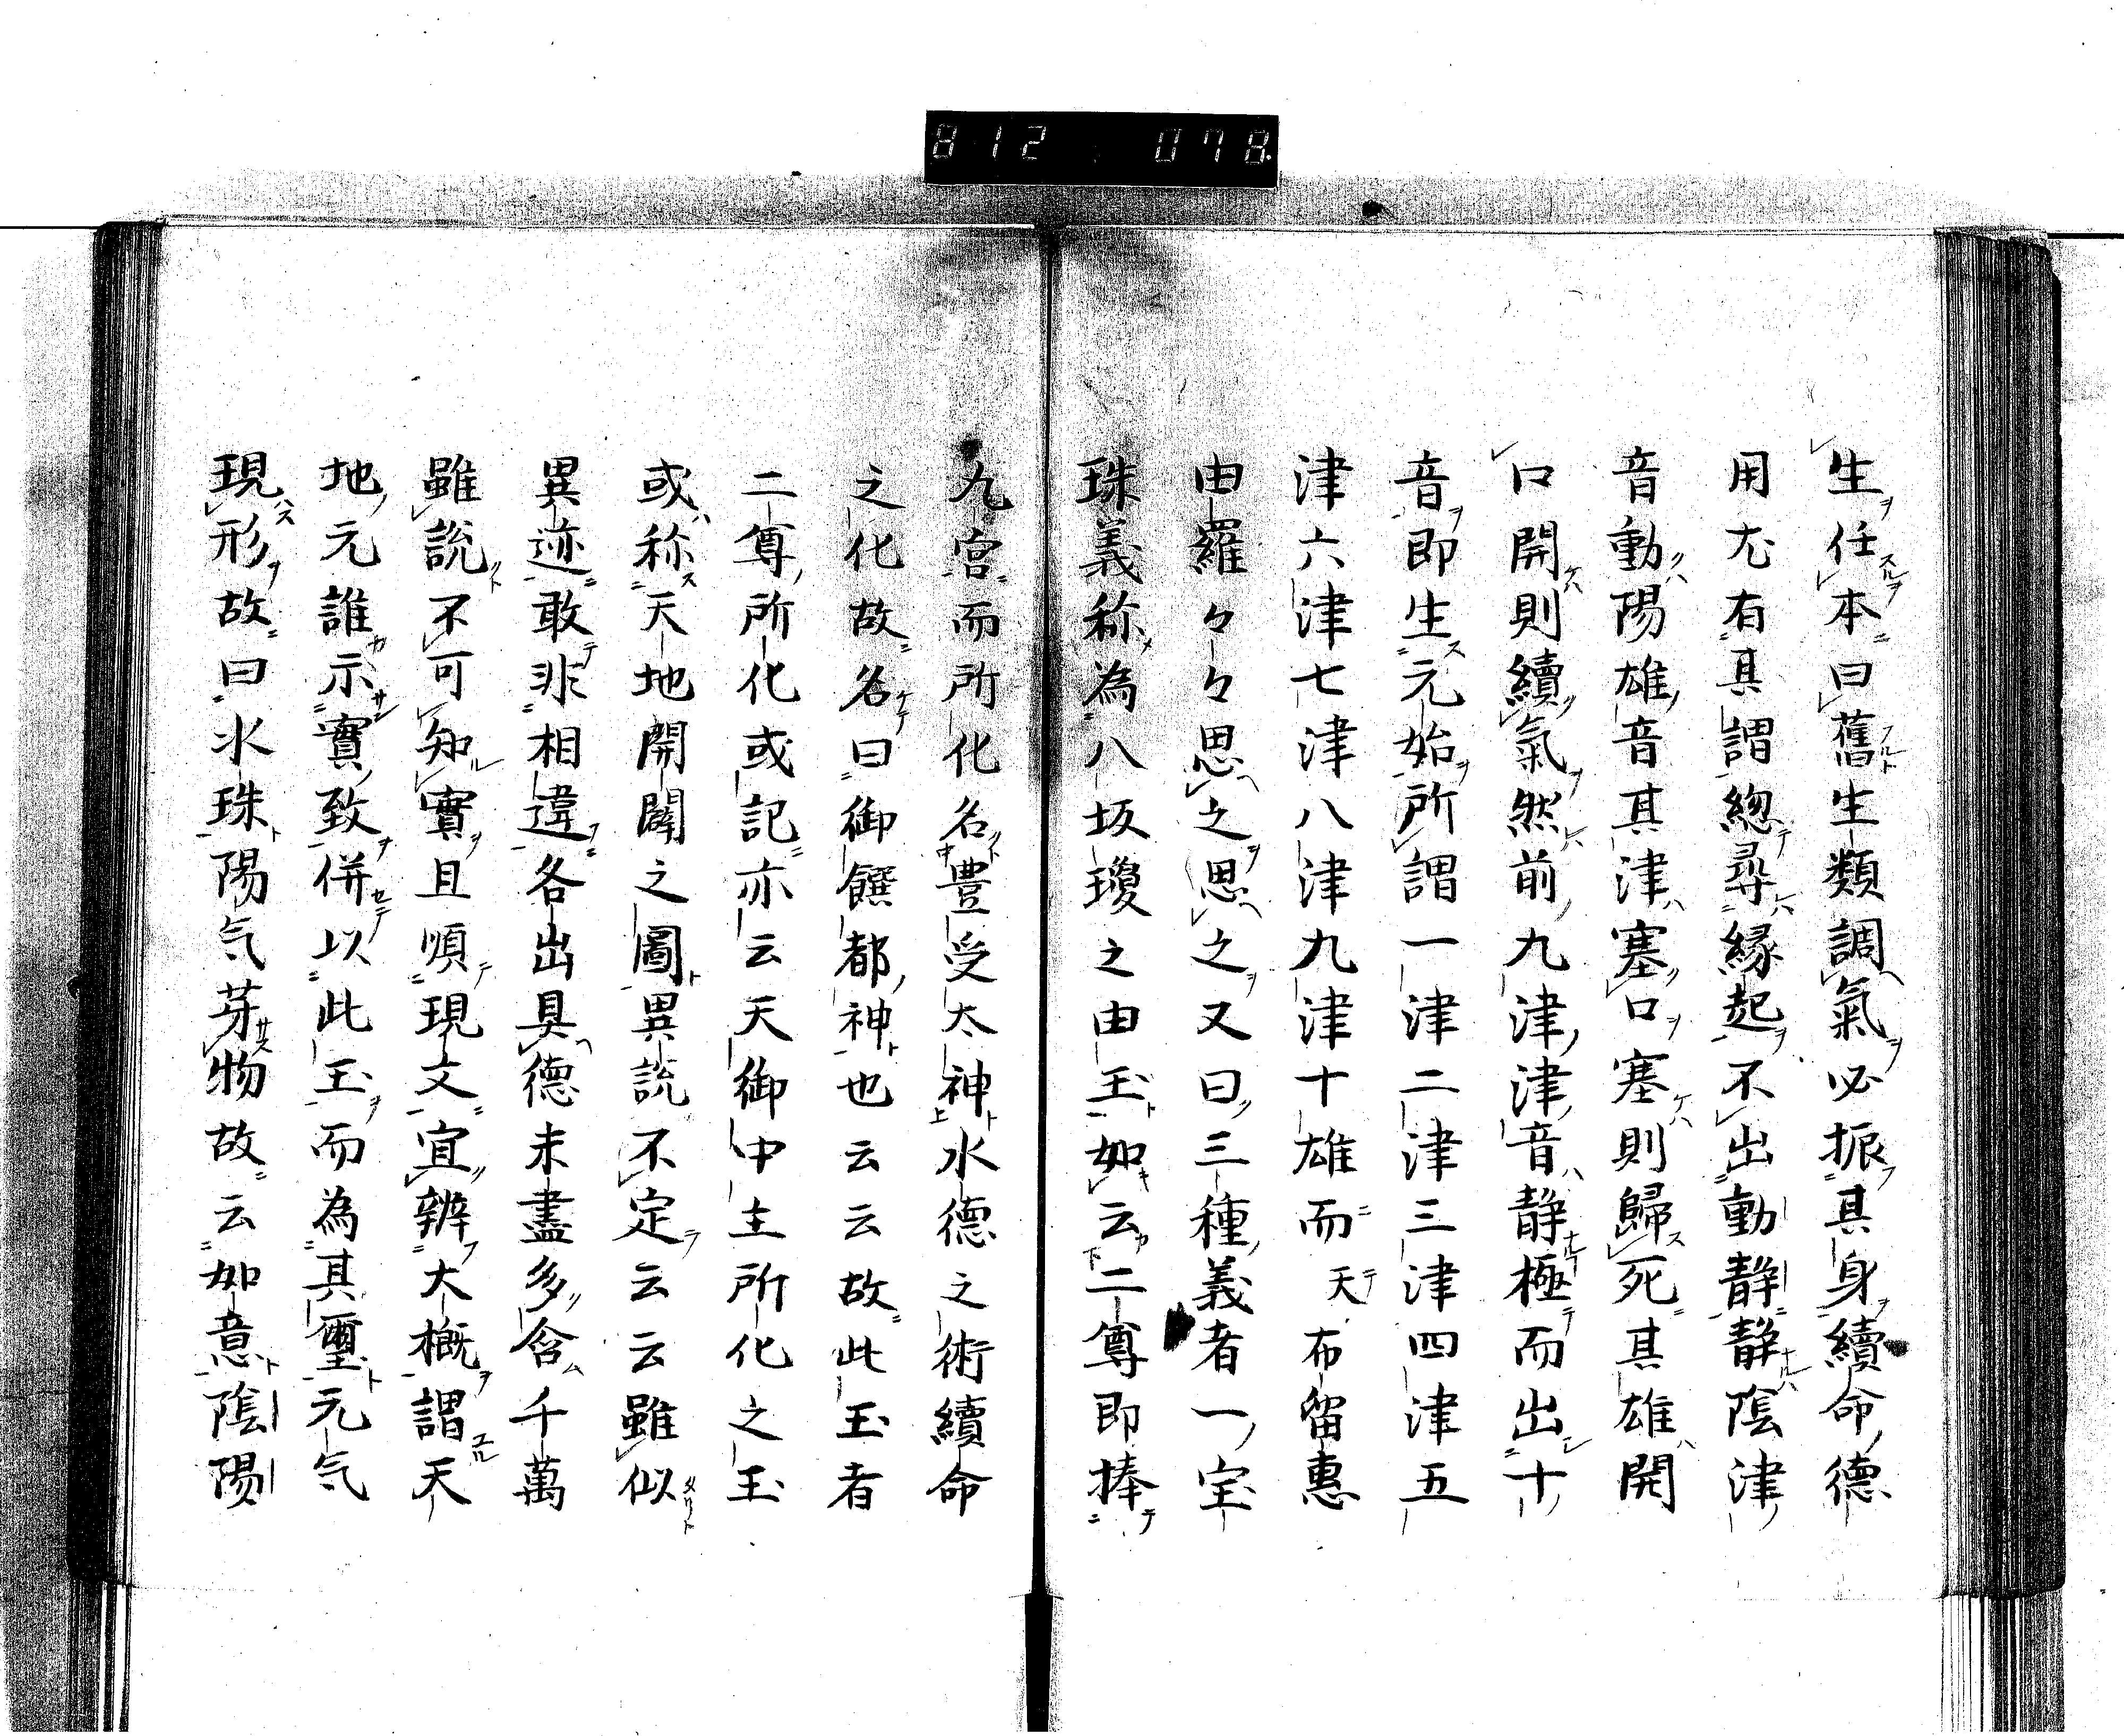 812 078
生任本曰舊生類調氣必振其身續命德
用尤有其謂緫尋縁起不出動静静陰津
音動陽雄音其津塞口塞則歸死其雄開
口開則續氣然前九津津音静極而出十
音即生元始所謂一津二津三津四津五
津六津七津八津九津十雄而天布留惠
由羅々々思之思之又曰三種義者一宝
珠義称為八坂瓊之由玉如云二尊即捧
九宮而所化名豊受太神水德之術續命
之化故名曰御饌都神也云云故此玉者
二尊所化或記亦云天御中主所化之玉
或称天地開闢之圖異説不定云云雖似
異迹敢非相違各出具德未盡多含千萬
雖説不可知實且順現文宜辨大概謂天
地元誰示實致併以此玉而為其璽元气
現形故曰水珠陽气芽物故云如意陰陽